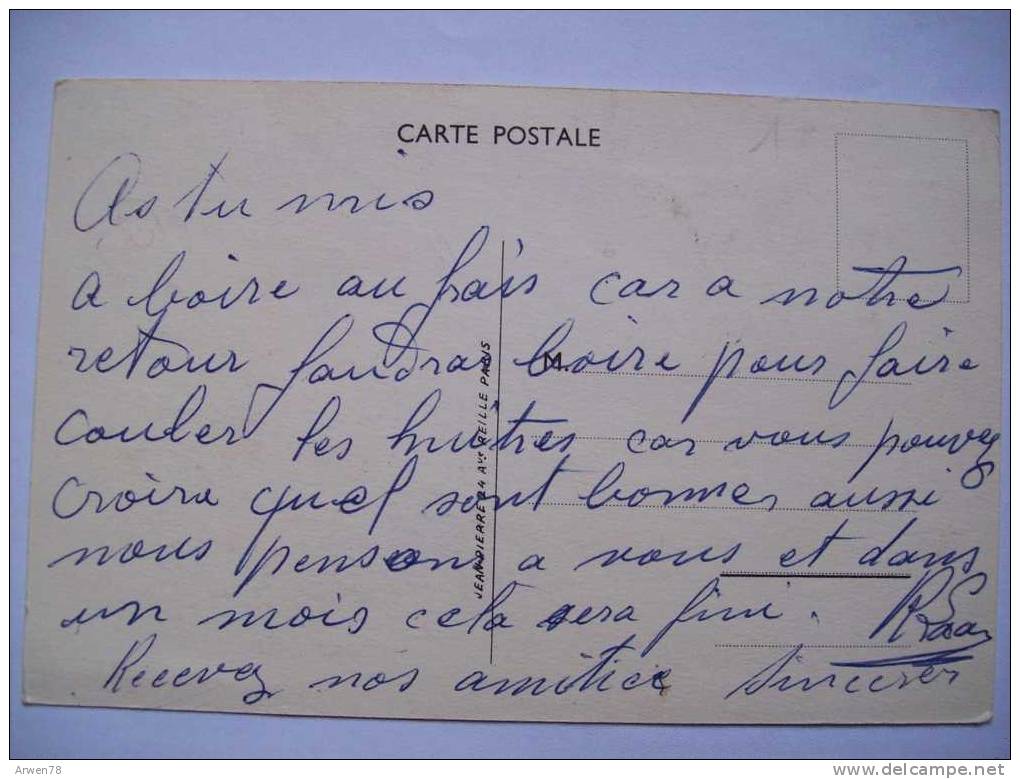 CARTE POSTALE
As tu mis
a boire au frais car a notre
retour faudras boire pour faire
couler les huitres car vous pouvez
M.
croire quel sont bonnes aussi
nous pensons a vous et dans
un mois cela sera fini.
Recevez nos amitiée sincères
JEAN PIERRE 24 AVE REILLE PARIS
Arwen78
delcampe.net